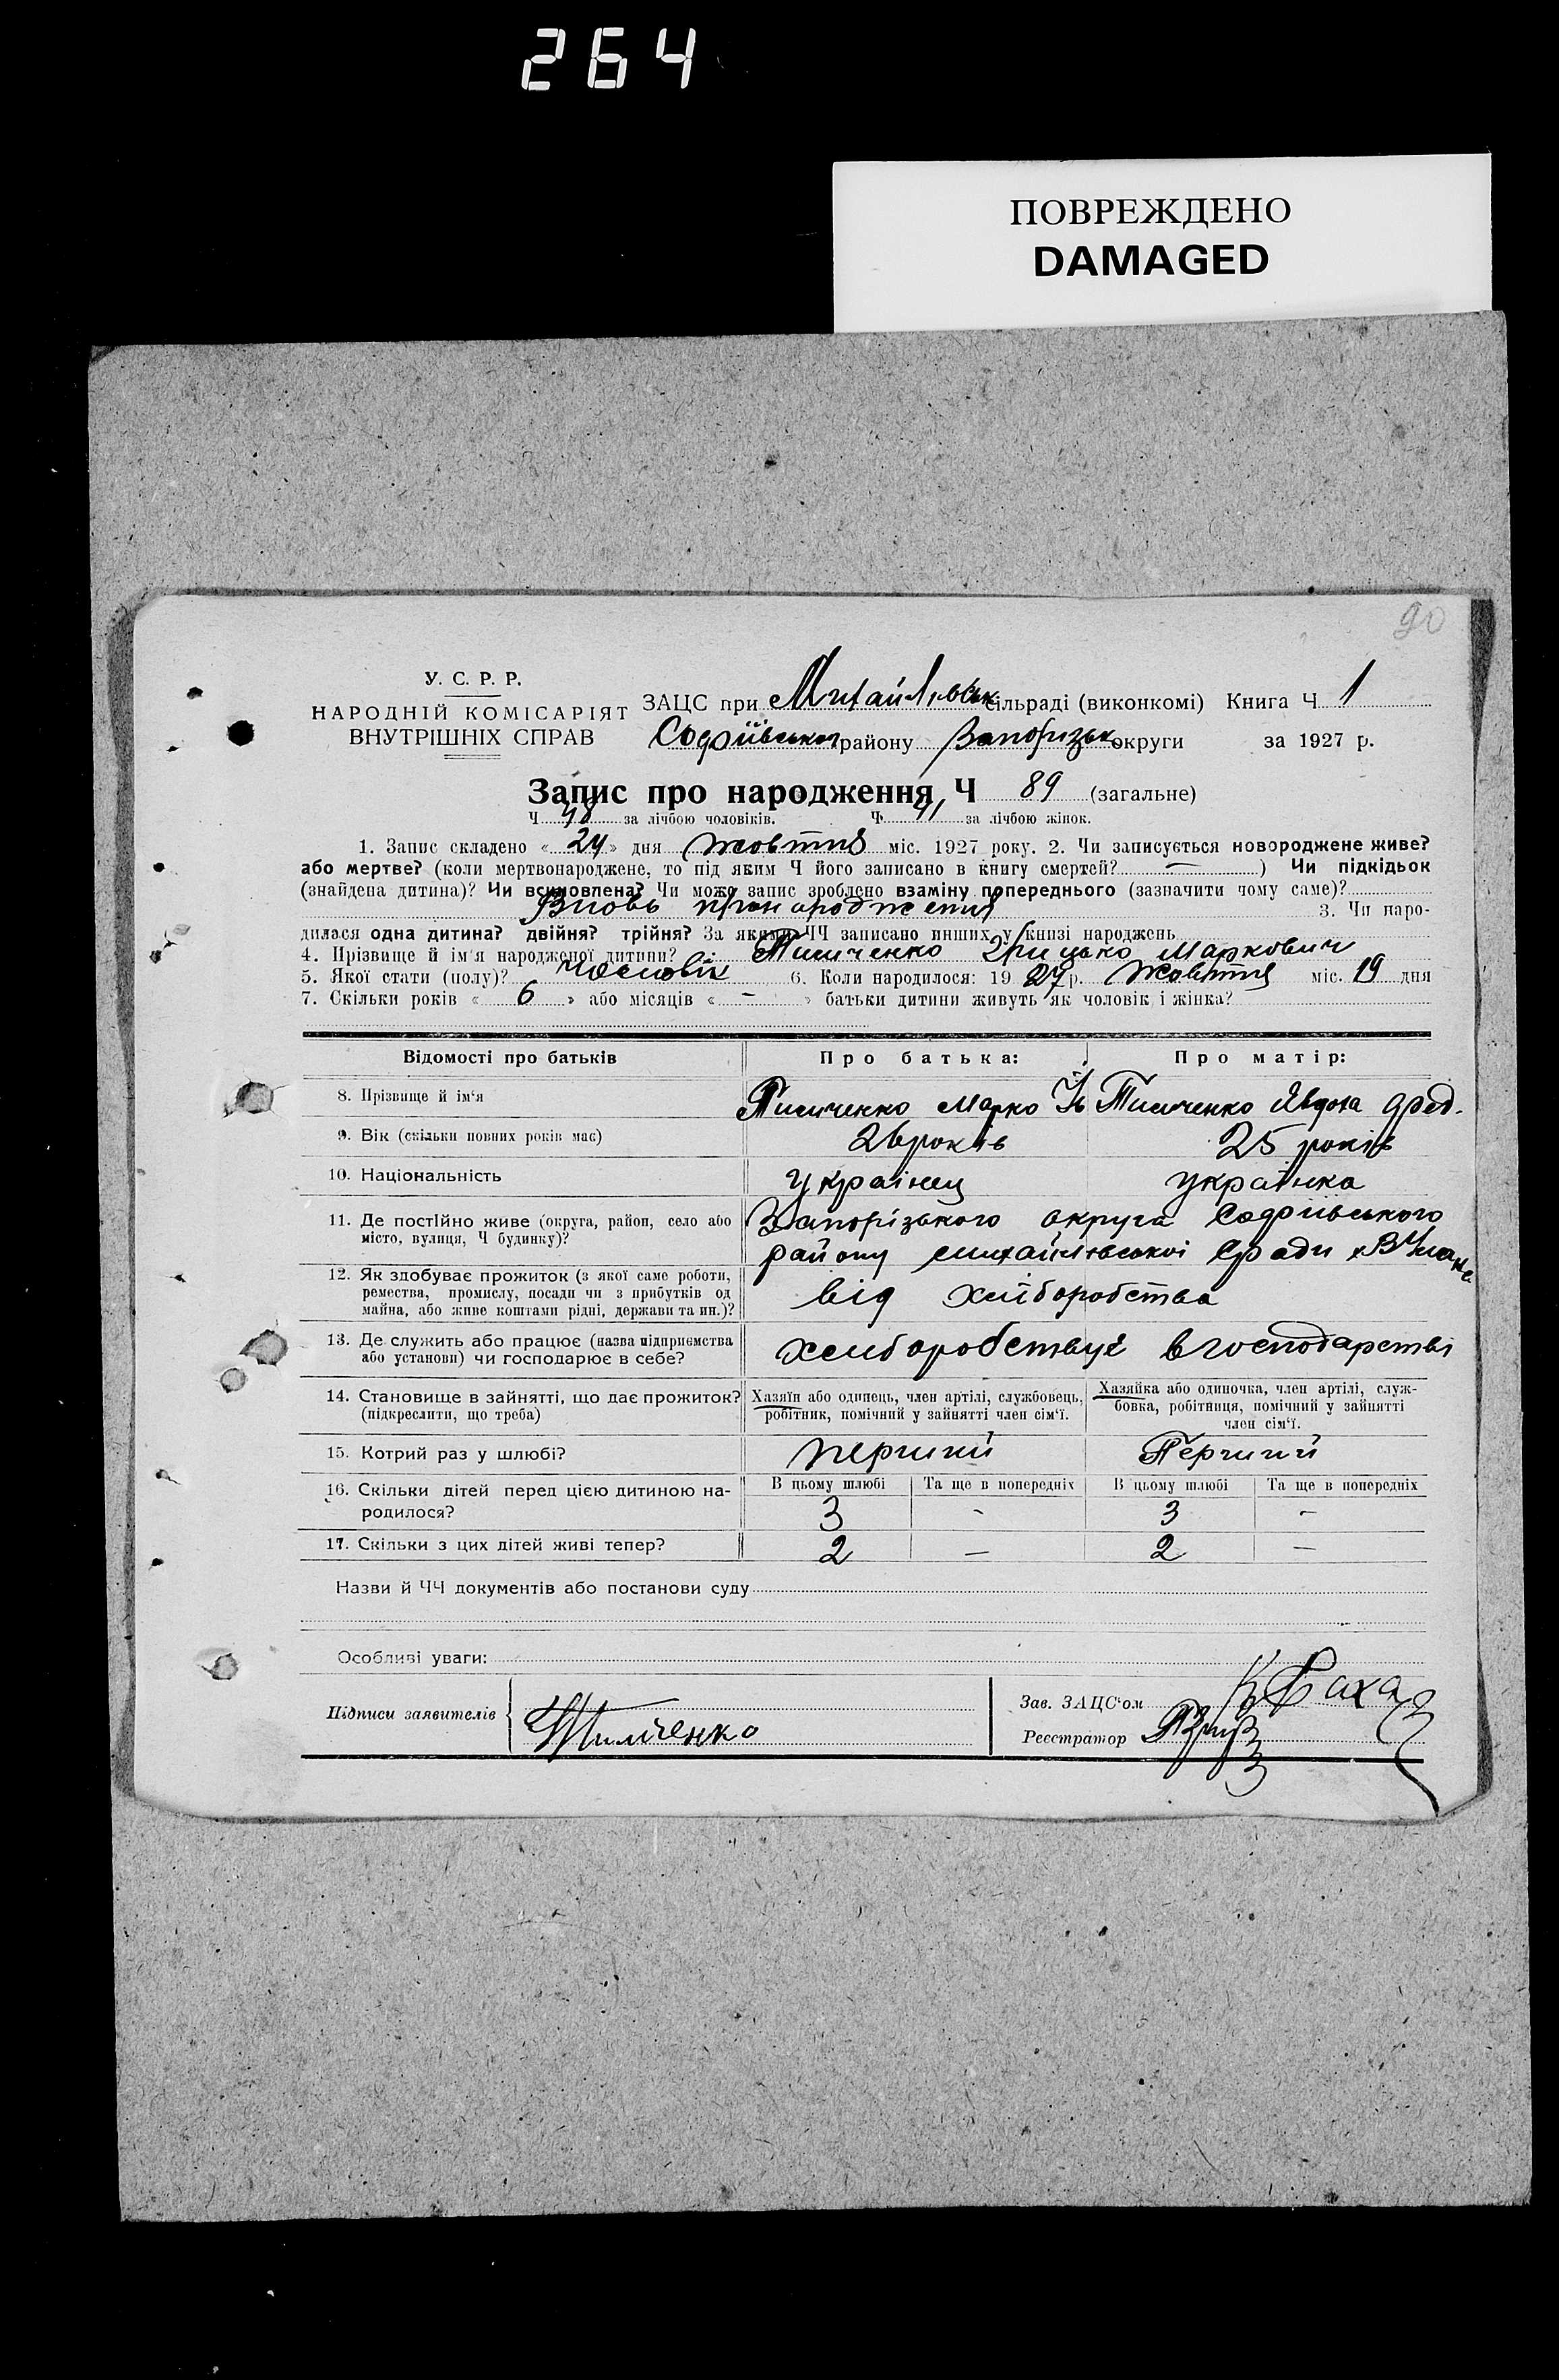 264
ПОВРЕЖДЕНО
DAMAGED
90
У. С. Р. Р.
НАРОДНІЙ КОМІСАРІЯТ
ВНУТРІШНІХ СПРАВ
ЗАЦС при Михайлівськ сільраді (виконкомі) Книга Ч 1
Софіївського району Запорізьк округи за 1927 р.
Запис про народження Ч 89 (загальне)
Ч 48 за лічбою чоловіків. Ч 41 за лічбою жінок.
1. Запис складено « 24 » дня Жовтня міс. 1927 року. 2. Чи записується новороджене живе?
або мертве? (коли мертвонароджене, то під яким Ч його записано в книгу смертей? — ) Чи підкідьок
(знайдена дитина)? Чи всиновлена? Чи може запис зроблено взаміну попереднього (зазначити чому саме)?
Вновь 3. Чи наро-
дилася одна дитина? двійня? трійня? За якими ЧЧ записано инших у книзі народжень
4. Прізвище й ім'я народженої дитини? Тимченко Грицько Маркович
5. Якої стати (полу)? чоловік 6. Коли народилося: 19 27 р. Жовтня міс. 19 дня
7. Скільки років « 6 » або місяців « - » батьки дитини живуть як чоловік і жінка?
Відомості про батьків Про батька: Про матір:
8. Прізвище й ім'я Тимченко Марко Тимченко Явдоха
9. Вік (скільки повних років має) 26 років 25 років
10. Національність українец українка
11. Де постійно живе (округа, район, село або Запорізького округа Софіївського
місто, вулиця, Ч будинку)? району Михайлівської с/ради
12. Як здобуває прожиток (з якої саме роботи,
ремества, промислу, посади чи з прибутків од від хліборобства
майна, або живе коштами рідні, держави та ин.)?
13. Де служить або працює (назва підприємства
або установи) чи господарює в себе? хліборобствує в господарстві
14. Становище в зайнятті, що дає прожиток? Хазяїн або одинець, член артілі, службовець, Хазяйка або одиночка, член артілі, служ-
(підкреслити, що треба) робітник, помічний у зайнятті член сім'ї. бовка, робітниця, помічний у зайнятті
член сім'ї.
15. Котрий раз у шлюбі? перший Перший
16. Скільки дітей перед цією дитиною на- В цьому шлюбі Та ще в попередніх В цьому шлюбі Та ще в попередніх
родилося? 3 - 3 -
17. Скільки з цих дітей живі тепер? 2 — 2 —
Назви й ЧЧ документів або постанови суду
Особливі уваги:
Підписи заявителів Тимченко
Зав. ЗАЦС'ом
Реєстратор